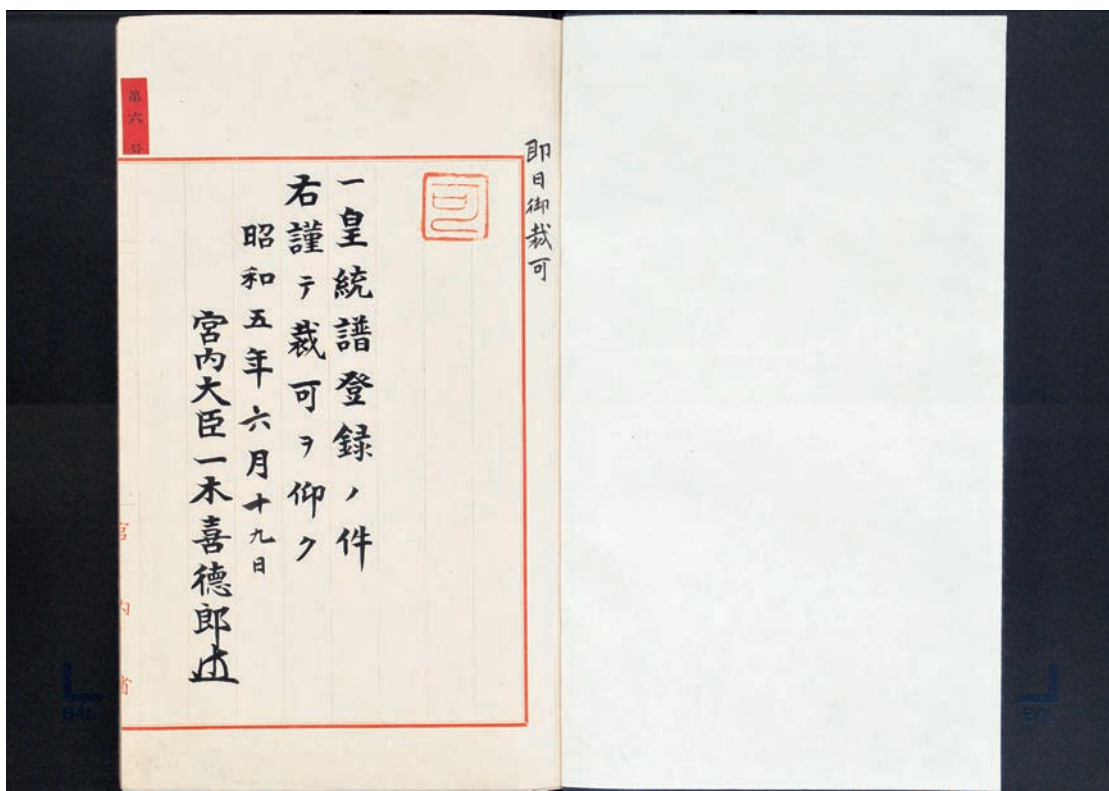 即日御裁可
可
一皇統譜登録ノ件
右謹テ裁可ヲ仰ク
昭和五年六月十九日
宮内大臣一木喜徳郎
第六
宮内省